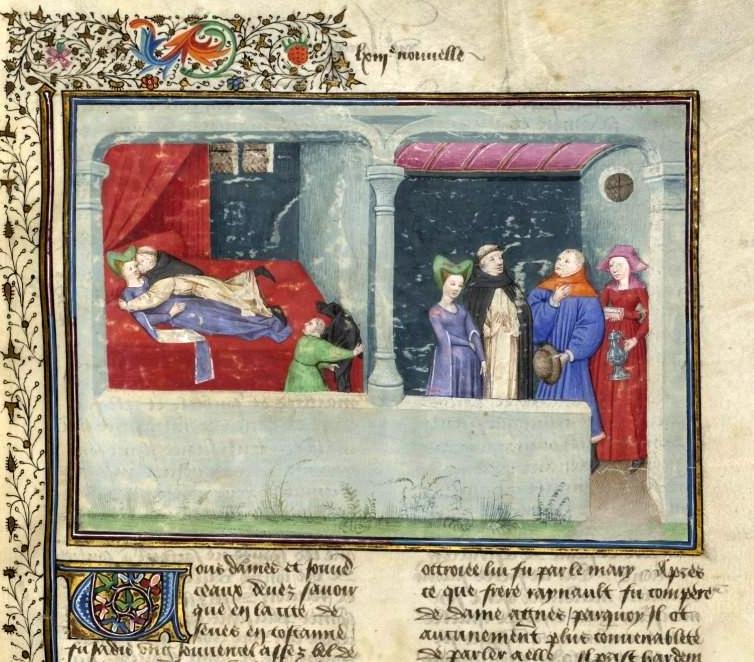 lxiijᵉ nouuelle
Uous dames et jouuē
ceaux deuez sauoir
que en la cite de
senes en toscanne
fu jadis ung jouuencel assez bel de
octroiee lui fu par le mary Apres
ce que frere raynault fu compere
de dame agnes parquoy Il ot
aucunement plus conuenablete
de parler a elle Il prist hardem